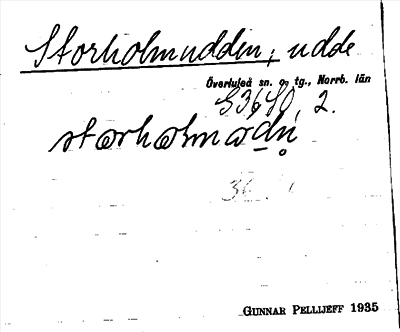 Storholmudden, udde
Överluleå sn. o. tg., Norrb. län
S3680, 2.
storholmodn̥
36
GUNNAR PELLIJEFF 1935